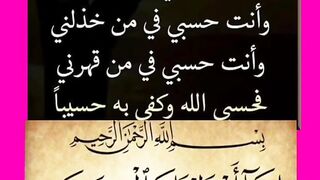 وأنت حسبي في من خذلني
وأنت حسبي في من قهرني
فحسبي الله وكفى به حسيباً
بِسْمِ اللَّهِ الرَّحْمَٰنِ الرَّحِيمِ